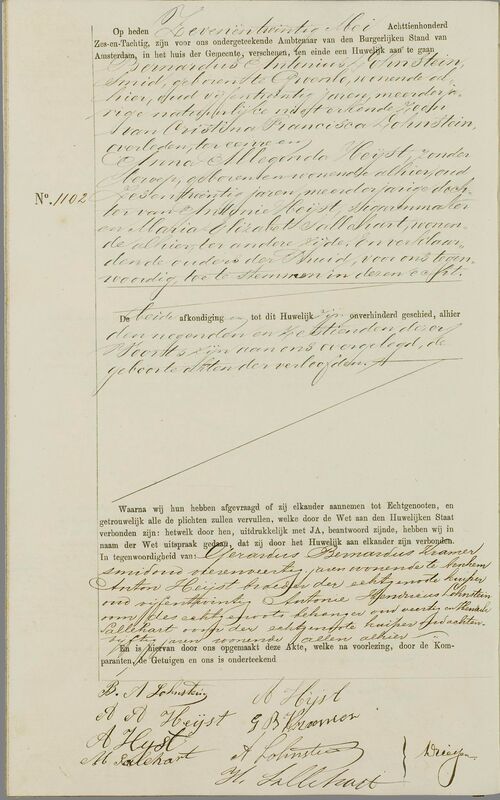 Op heden Zevenentwintig Mei Achttienhonderd
Zes-en-Tachtig, zijn voor ons ondergeteekende Ambtenaar van den Burgerlijken Stand van
Amsterdam, in het huis der Gemeente, verschenen, ten einde een Huwelijk aan te gaan
Bernardus Antonius Lohnstein,
smid, geboren te Twente, wonende al-
hier, oud vijfentwintig jaren, meerderja-
rige natuurlijke erkende zoon
van Cristina Francisca Lohnstein,
overleden, ter eenre en
Anna Allegonda Heijst, zonder
beroep, geboren en wonende alhier, oud
zesentwintig jaren, meerderjarige doch-
ter van Antonie Heijst, sigarenmaker
en Maria Elizabeth Sallehart, wonen-
de alhier, ter andere zijde, en verklaar-
den de ouders der Bruid, voor ons tegen-
woordig, toe te stemmen in dezen echt.
N°. 1102
De beide afkondigingen tot dit Huwelijk zijn onverhinderd geschied, alhier
den negenden en zestienden dezer
Voorts zijn aan ons overgelegd, de
geboorte akten der verloofden.
Waarna wij hun hebben afgevraagd of zij elkander aannemen tot Echtgenooten, en
getrouwelijk alle de plichten zullen vervullen, welke door de Wet aan den Huwelijken Staat
verbonden zijn: hetwelk door hen, uitdrukkelijk met JA, beantwoord zijnde, hebben wij in
naam der Wet uitspraak gedaan, dat zij door het Huwelijk aan elkander zijn verbonden.
In tegenwoordigheid van: Gerardus Bernardus Kramer
smid oud drieenveertig jaren wonende te Arnhem
Anton Heijst broeder der echtgenoote kuiper
oud vijfentwintig Antonie Hendricus Lohnstein
oom des echtgenoots behanger oud veertig en Hendrik
Sallehart oom der echtgenoote kuiper oud achten-
vijftig jaren wonende allen alhier
En is hiervan door ons opgemaakt deze Akte, welke na voorlezing, door de Kom-
paranten, de Getuigen en ons is onderteekend
B. A Lohnstein A Hijst
A A Heijst G B Kramer
A Hijst A Lohnstein
M Sallehart H. Sallehart